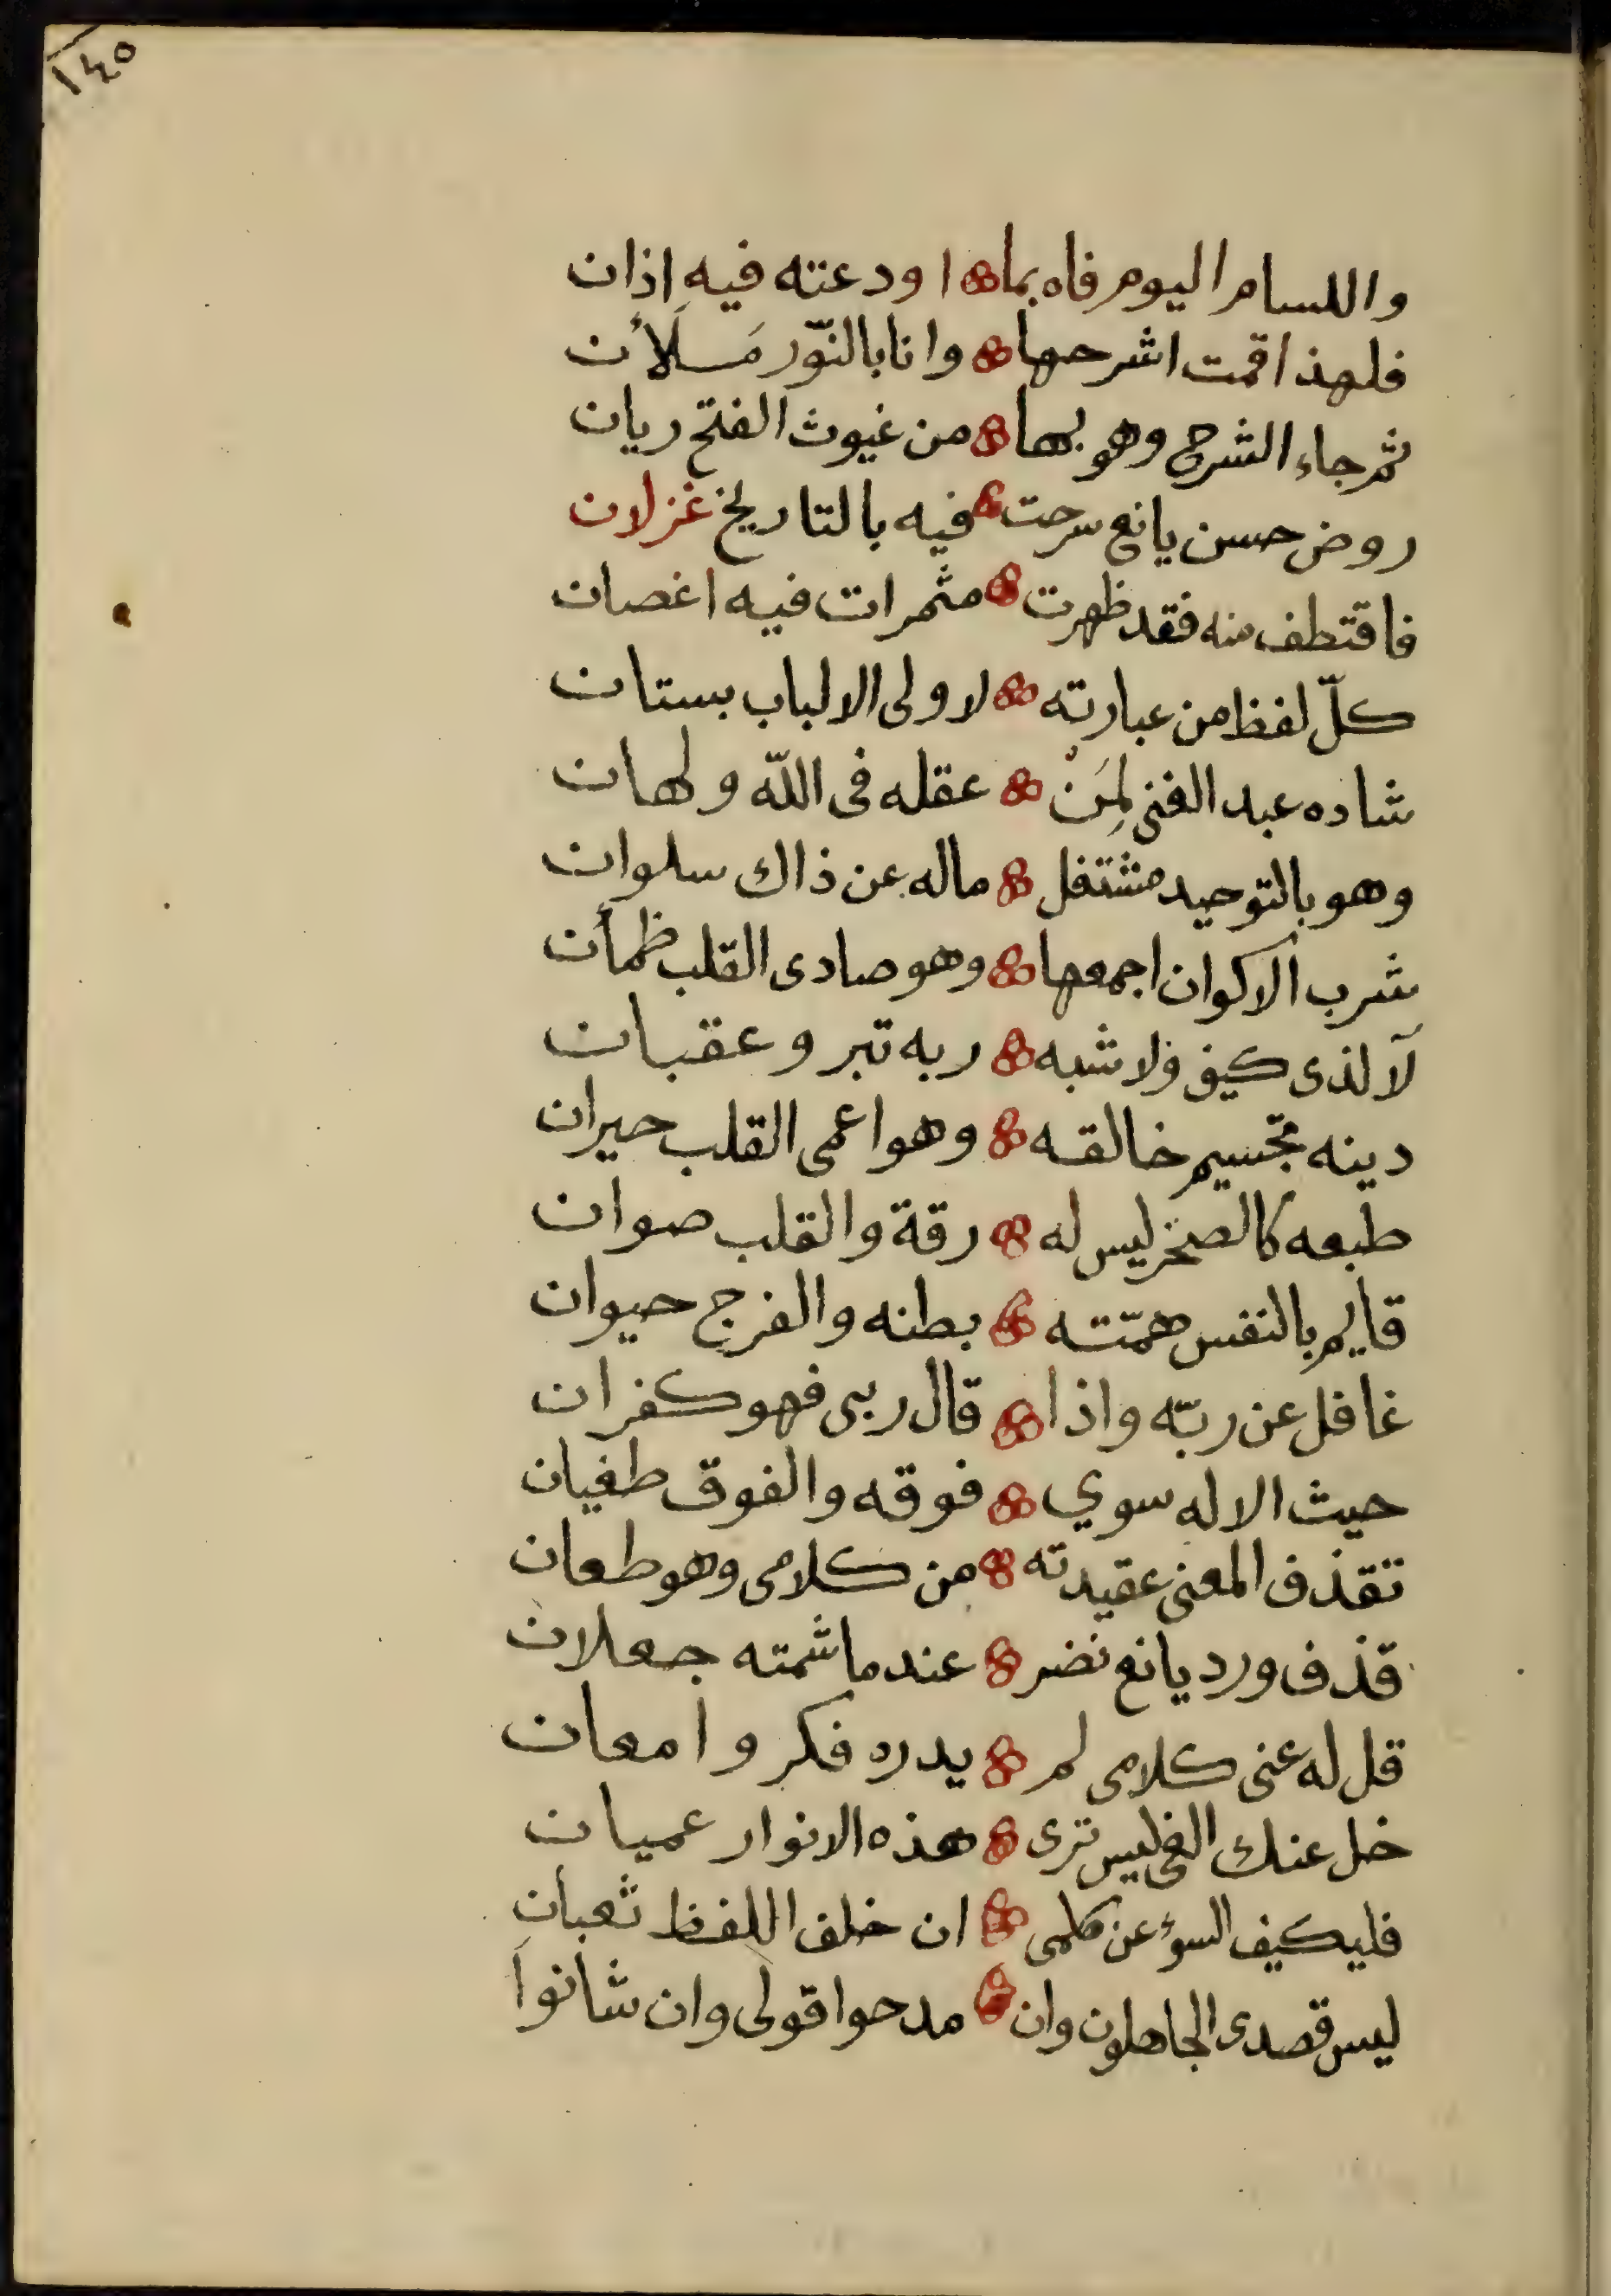 ١٤٥
واللسام اليوم فاه بما ۞ اودعته فيه اذان
فلهذا قمت اشرحها ۞ وانا بالنّور مَلأن
ثم جاء الشرح وهو بها ۞ من غيوث الفتح ريان
روض حسن يانع سرحت ۞ فيه بالتاريخ غزلان
فاقتطف منه فقد ظهرت ۞ مثمرات فيه اغصان
كلّ لفظ من عبارته ۞ لاولى الالباب بستان
شاده عبد الغنى لِمَنْ ۞ عقله فى اللّه ولهان
وهو بالتوحيد مشتغل ۞ ماله عن ذاك سلوان
شرب الاكوان اجمعها ۞ وهو صادى القلب ظمأن
لا لذى كيف ولا شبه ۞ ربه تبر وعقيان
دينه تجّسيم خالقه ۞ وهو اعمى القلب حيران
طبعه كالصخر ليس له ۞ رقة والقلب صوان
قايم بالنفس همّته ۞ بطنه والفرج حيوان
غافل عن ربّه واذا ۞ قال ربى فهو كفران
حيث الاله سوي ۞ فوقه والفوق طغيان
تقذف المعنى عقيدته ۞ من كلامى وهو طعان
قذف ورد يانع نضر ۞ عند ما شمته جعلان
قل له عنى كلامى لم ۞ يدره فكر وامعان
خل عنك الغى ليس ترى ۞ هذه الانوار عميان
فليكيف السوء عن كلمى ۞ ان خلف اللفظ ثعبان
ليس قصدى الجاهلون وان ۞ مدحوا قولى وان شانوا